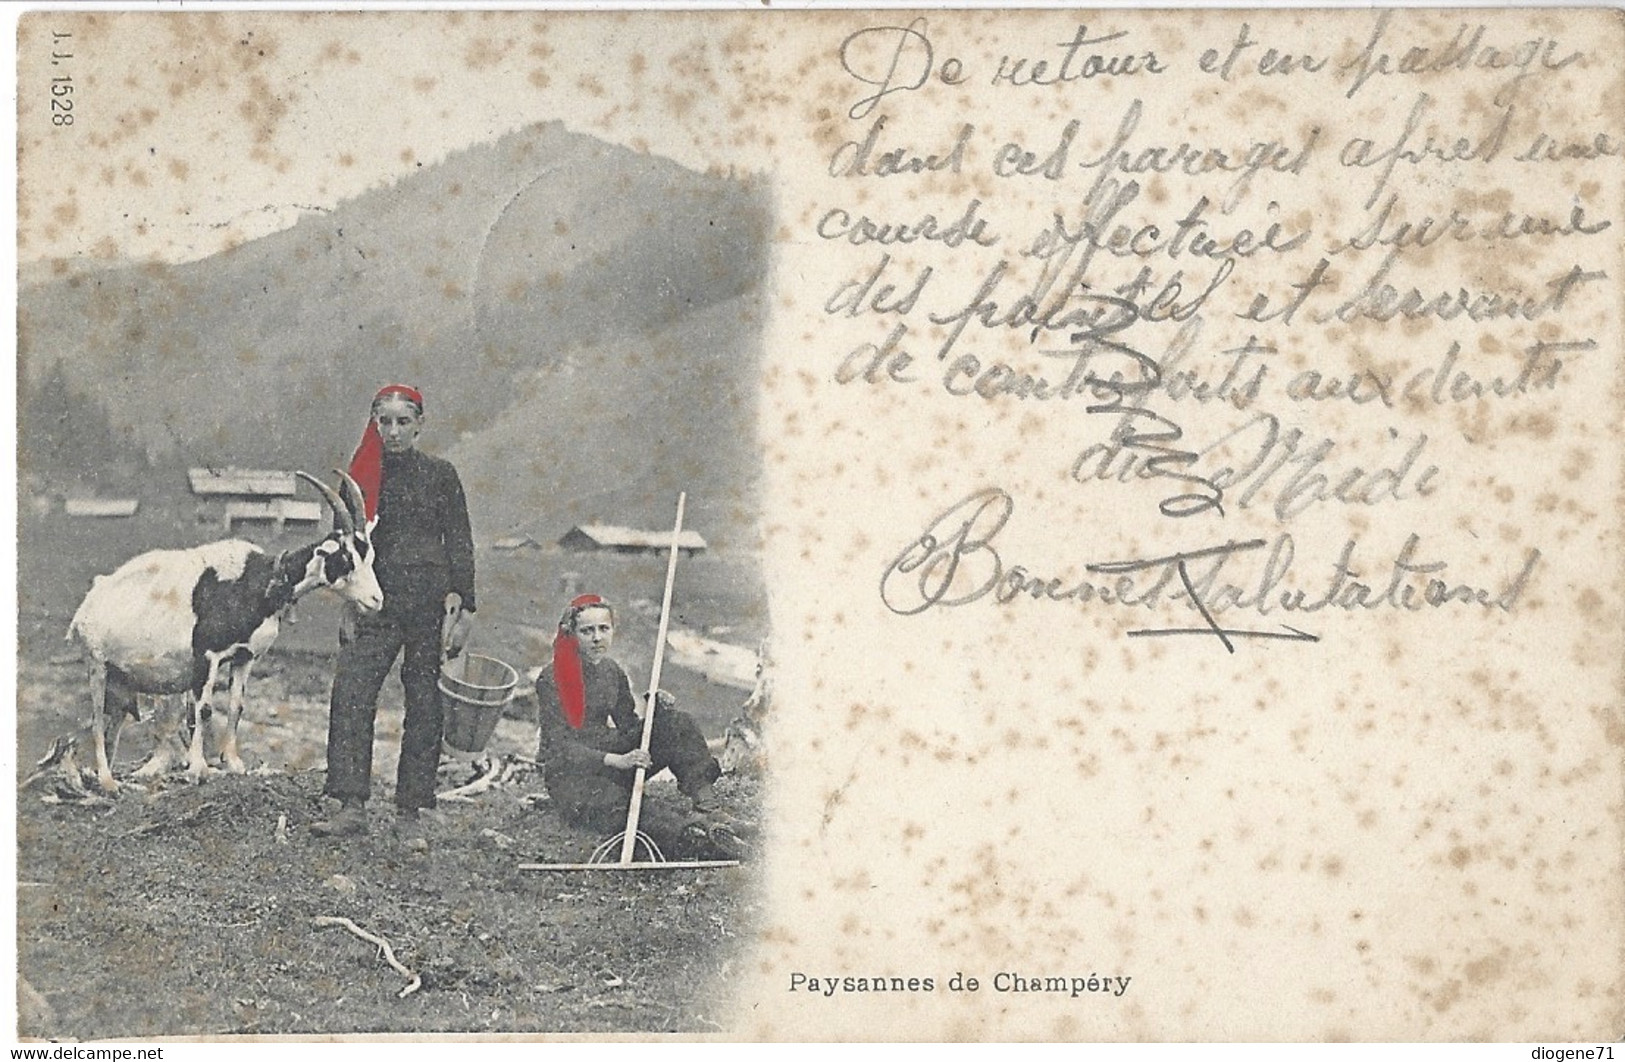 J. J. 1528
De retour et en passage
dans ces parages après une
course effectuée sur une
des pointes et servant
de contreforts aux dents
du Midi
Bonnes Salutations
Paysannes de Champéry
diogene71